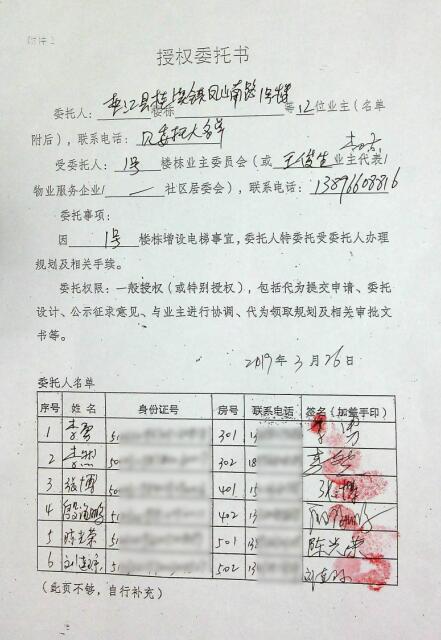 附件2
授权委托书
委托人：垫江县桂溪镇凤山南路1号楼 楼栋 等12位业主（名单
附后），联系电话：见委托人名单
受委托人：1号 楼栋业主委员会（或 王俊生 业主代表/
物业服务企业/ 社区居委会），联系电话：13896608816
委托事项：
因 1号 楼栋增设电梯事宜，委托人特委托受委托人办理
规划及相关手续。
委托权限：一般授权（或特别授权），包括代为提交申请、委托
设计、公示征求意见、与业主进行协调、代为领取规划及相关审批文
书等。
2019年3月26日
委托人名单
序号 姓名 身份证号 房号 联系电话 签名（加盖手印）
1 李勇 51 301 13 李勇
2 李 50 302 18 李
3 张博 50 401 15 张博
4 51 402 13
5 陈光荣 51 501 13 陈光荣
6 刘 51 502 13 刘
（此页不够，自行补充）